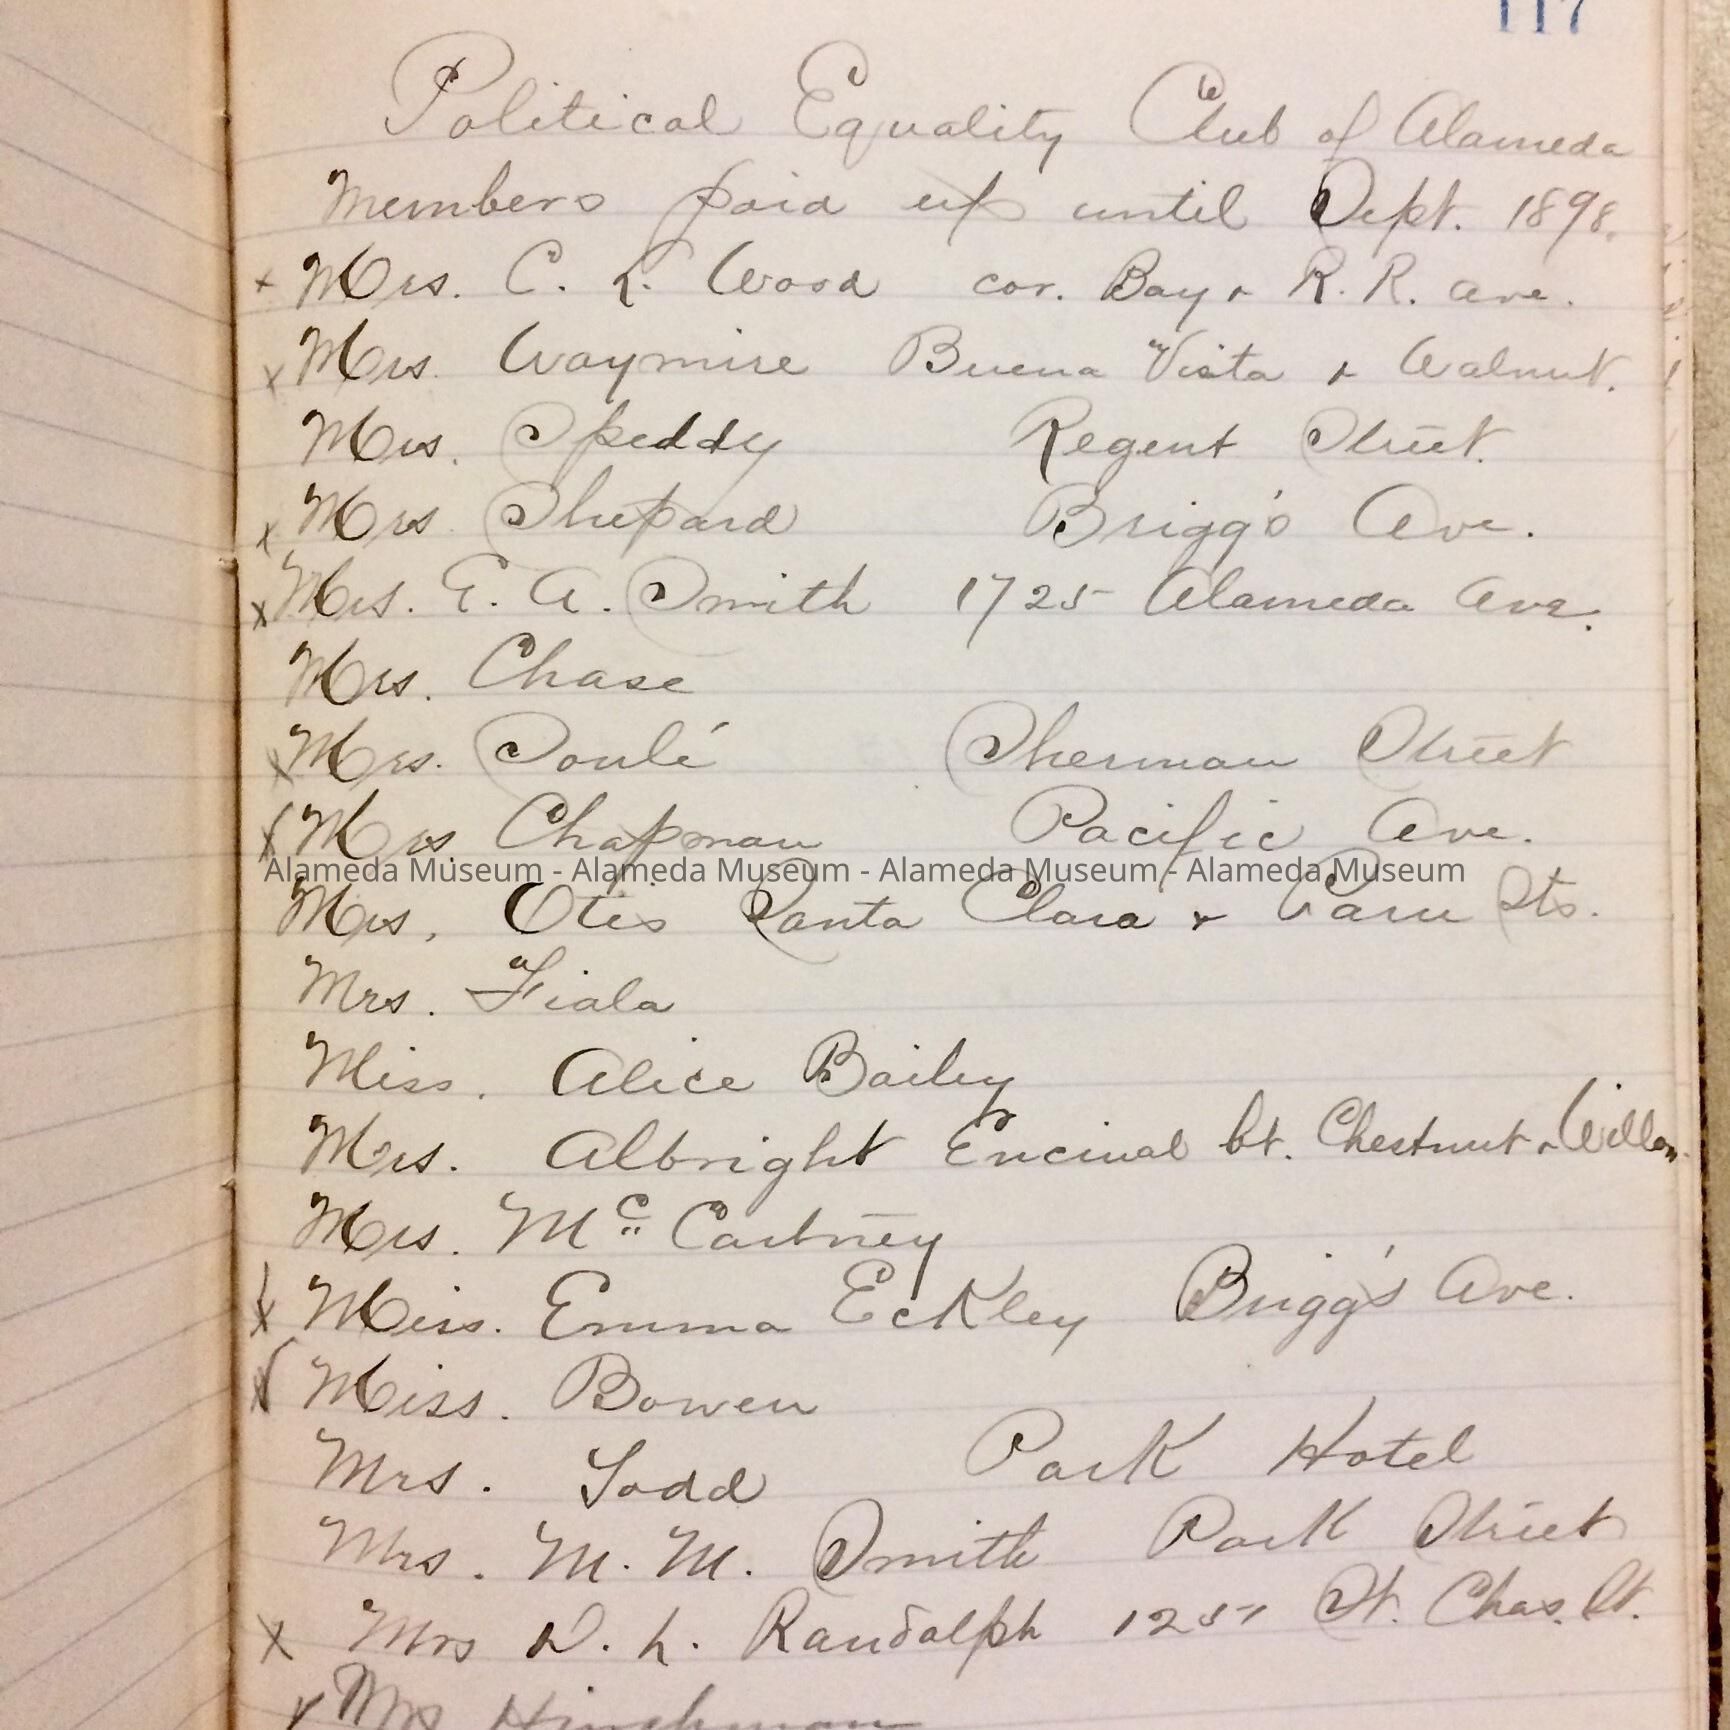 117
Political Equality Club of Alameda
Members paid up until Sept. 1898.
x Mrs. C. L. Wood cor. Bay & R. R. Ave.
x Mrs. Waymire Buena Vista & Walnut.
Mrs. Speddy Regent Street.
x Mrs. Shepard Brigg's Ave.
x Mrs. E. A. Smith 1725 Alameda Ave.
Mrs. Chase
x Mrs. Soulé Sherman Street
x Mrs Chapman Pacific Ave.
Alameda Museum - Alameda Museum - Alameda Museum - Alameda Museum
Mrs. Otis Santa Clara & Paru Sts.
Mrs. Fiala
Miss. Alice Bailey
Mrs. Albright Encinal bt. Chestnut & Willow.
Mrs. Mc Cartney
x Miss. Emma Eckley Brigg's Ave.
x Miss. Bowen
Mrs. Todd Park Hotel
Mrs. M. M. Smith Park Street
x Mrs D. L. Randolph St. Chas. St.
x Mrs Hinchman